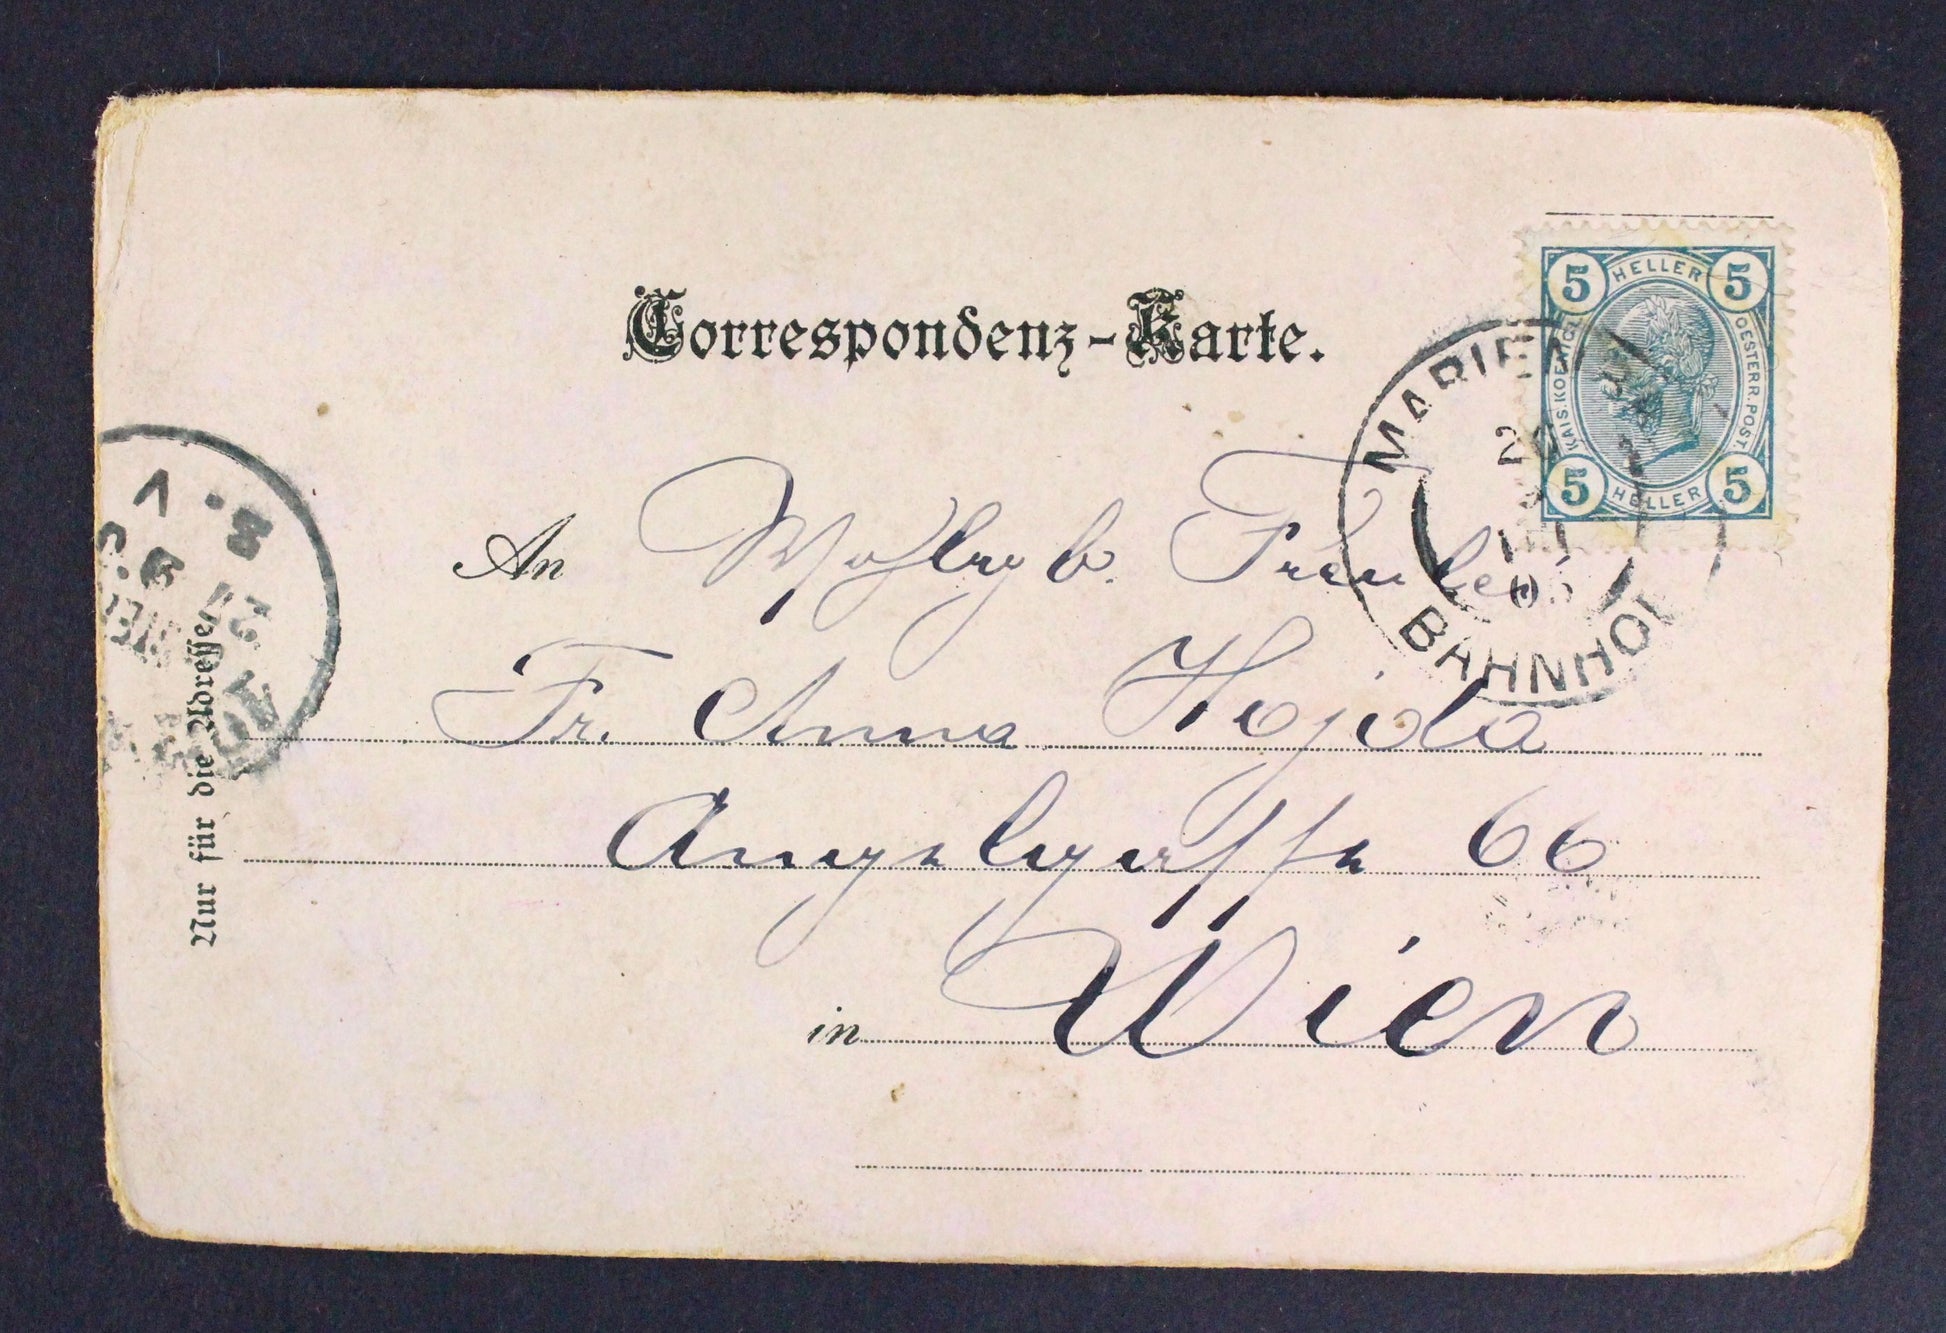 Correspondenz-Karte.
5 HELLER 5
KAIS. KOENIGL.
OESTERR. POST.
5 HELLER 5
MARIEN
BAHNHOF
An Wohlgb.
Fr. Anna Hojda
Angelgasse 66
in Wien
Nur für die Adresse.